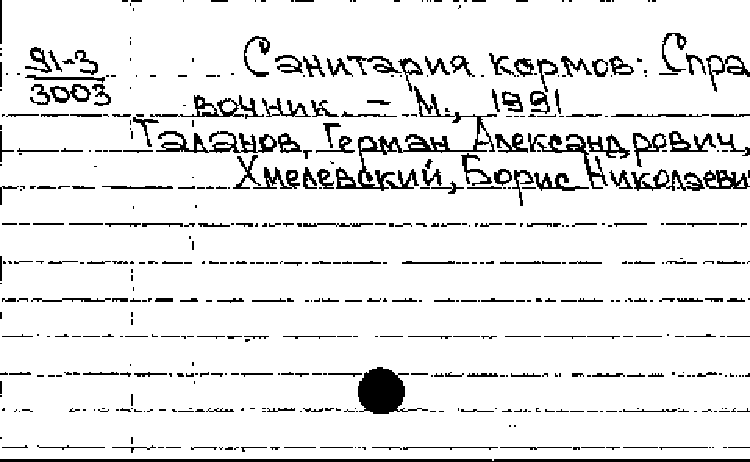 91-3
3003
Санитария кормов: Спра
вочник. - М., 1991
Таланов, Герман Александрович,
Хмелевский, Борис Николаеви